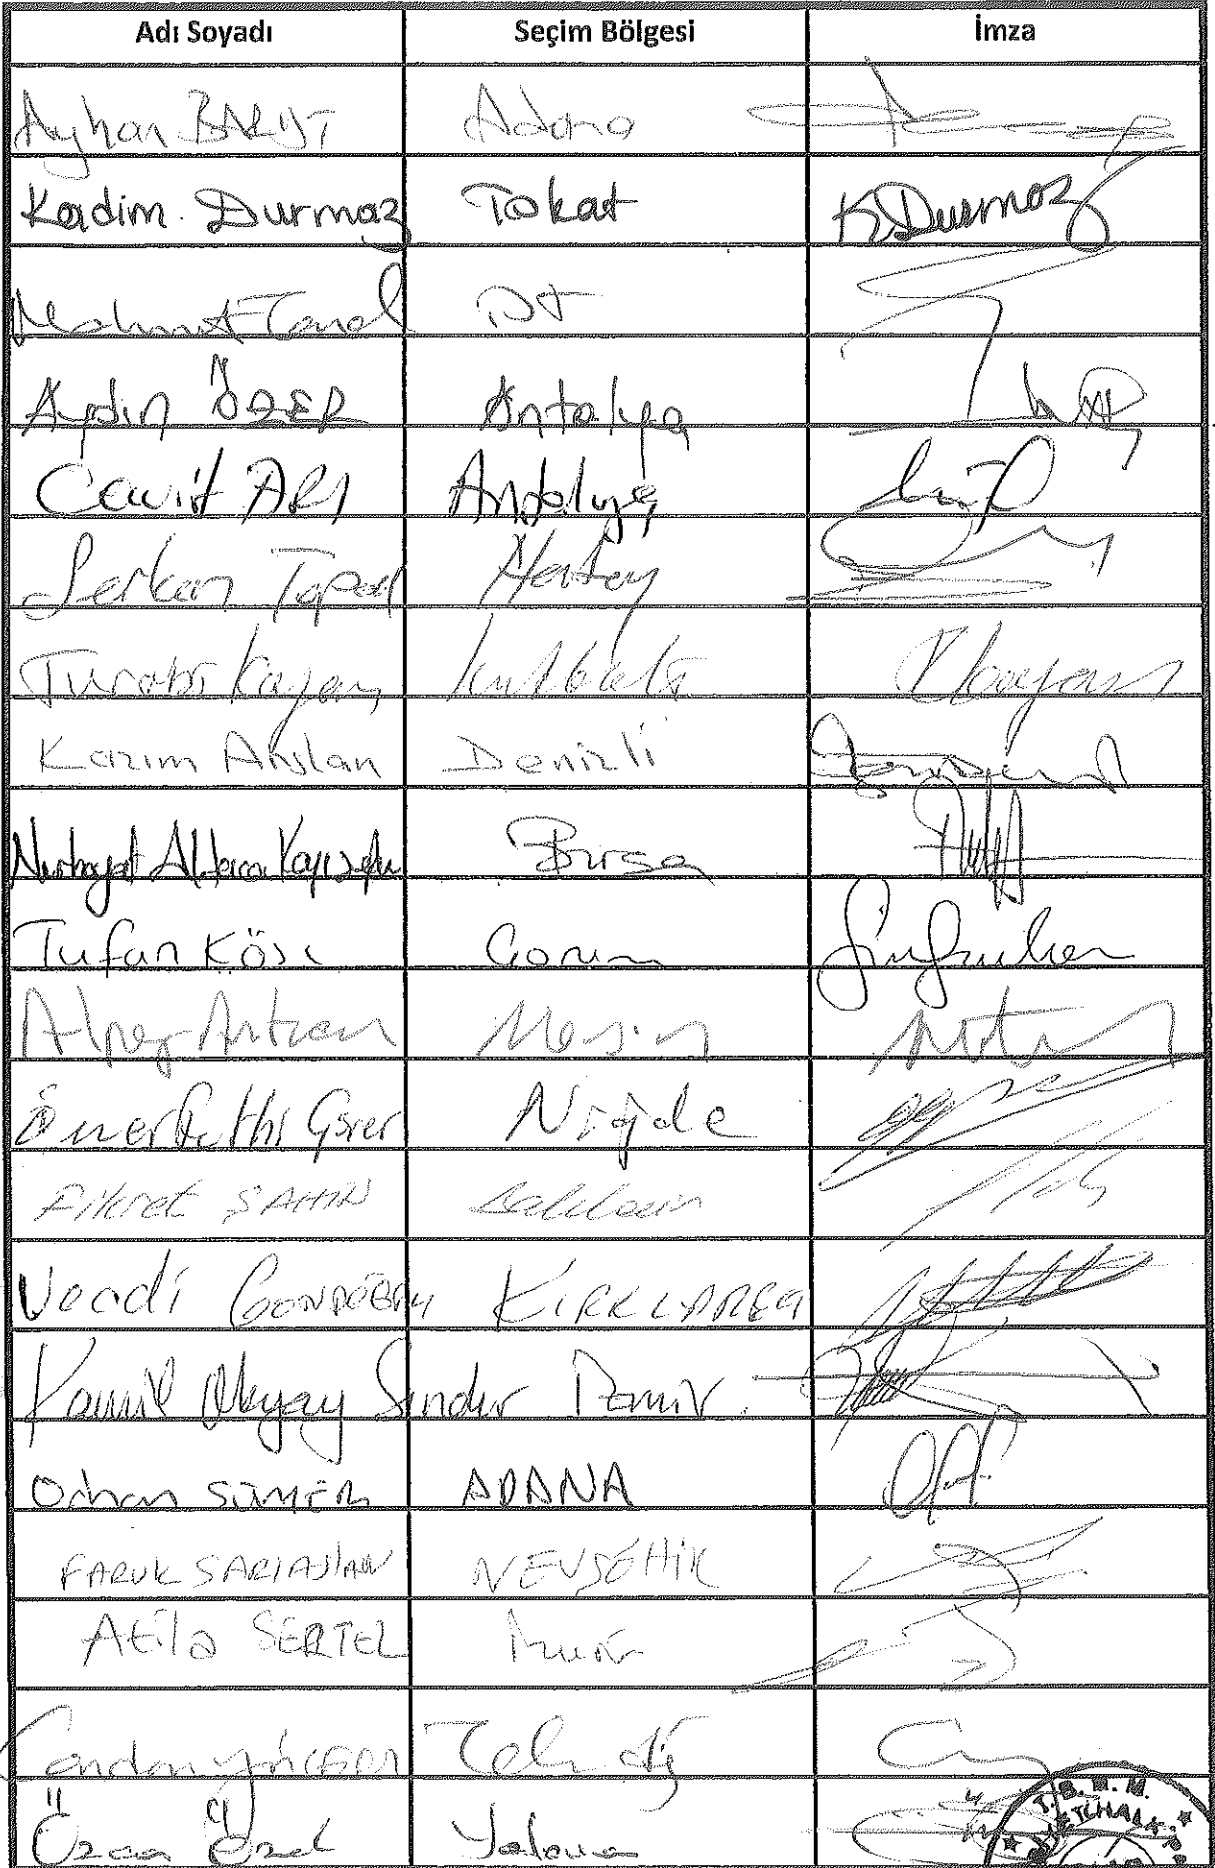 Adı Soyadı Seçim Bölgesi İmza
Ayhan BARUT Adana
Kadim Durmaz Tokat K Durmaz
Mahmut Tanal İst
Aydın ÖZER Antalya
Cavit ARI Antalya
Serkan Topal Hatay
Turabi Kayan Kırklareli
Kazım Arslan Denizli
Nurhayat Altaca Kayışoğlu Bursa
Tufan Köse Çorum
Alpay Antmen Mersin
Ömer Fethi Gürer Niğde
Fikret ŞAHİN Balıkesir
Vecdi GÜNDOĞDU KIRKLARELİ
Kamil Okyay Sındır İzmir
Orhan SÜMER ADANA
FARUK SARIASLAN NEVŞEHİR
Atila SERTEL İzmir
Candan YÜCEER Tekirdağ
Özcan Özel Yalova
T.B.M.M.